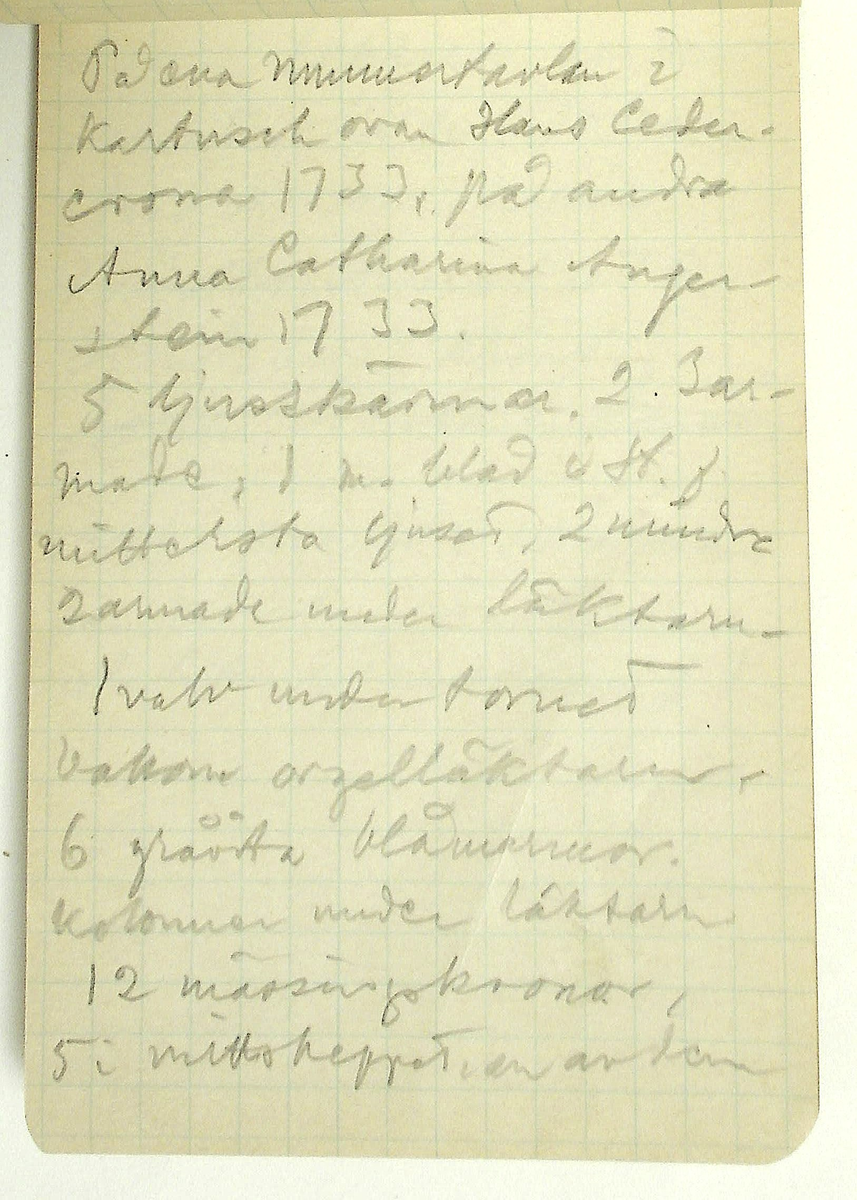 På ena nummertavlan i
kartusch ovan Hans Ceder-
crona 1733, på andra
Anna Catharina Anger-
stein 1733.
5 ljusskärmar. 2. 3ar-
made, 1 m. blad i st. f.
mittelsta ljuset, 2 mindre
2armade under läktarn-
1 valv under tornet
bakom orgelläktaren.
6 gråvita blåmarmor.
kolonner under läktarn
12 mässingskronor,
5 i mittskeppet, en av dem